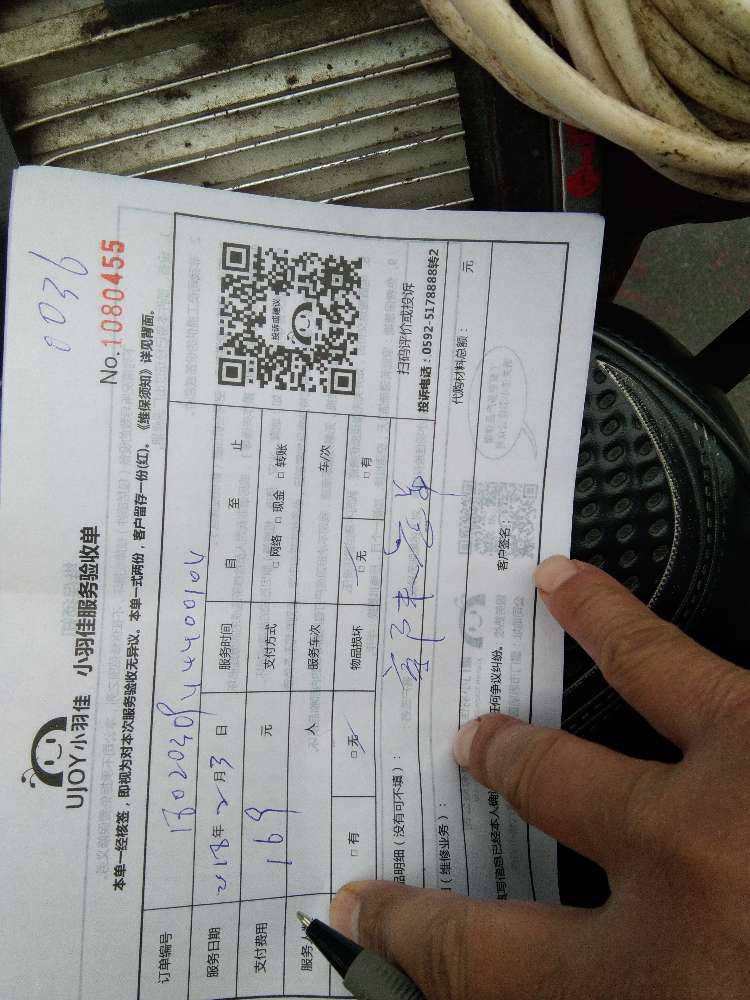 0036
No.1080455
UJOY小羽佳 小羽佳服务验收单
本单一经核签，即视为对本次服务验收无异议。本单一式两份，客户留存一份(红)。《维保须知》详见背面。
订单编号
服务日期 2018年2月3日 服务时间 自 至 止
支付费用 169 元 支付方式 □网络 □现金 □转账
服务人 人 服务车次 车/次
□有 □无 物品损坏 □无 □有
投诉或建议
扫码评价或投诉
投诉电话：0592-5178888转2
品明细（没有可不填）：
（维修业务）： 代购材料总额： 元
填写信息已经本人确 任何争议纠纷。 客户签名：